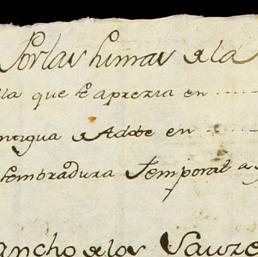 Por las himas de la
lla que se aprezia en ......
ntigua de Adove en ......
sembradura temporal a
ancho de los Sauze